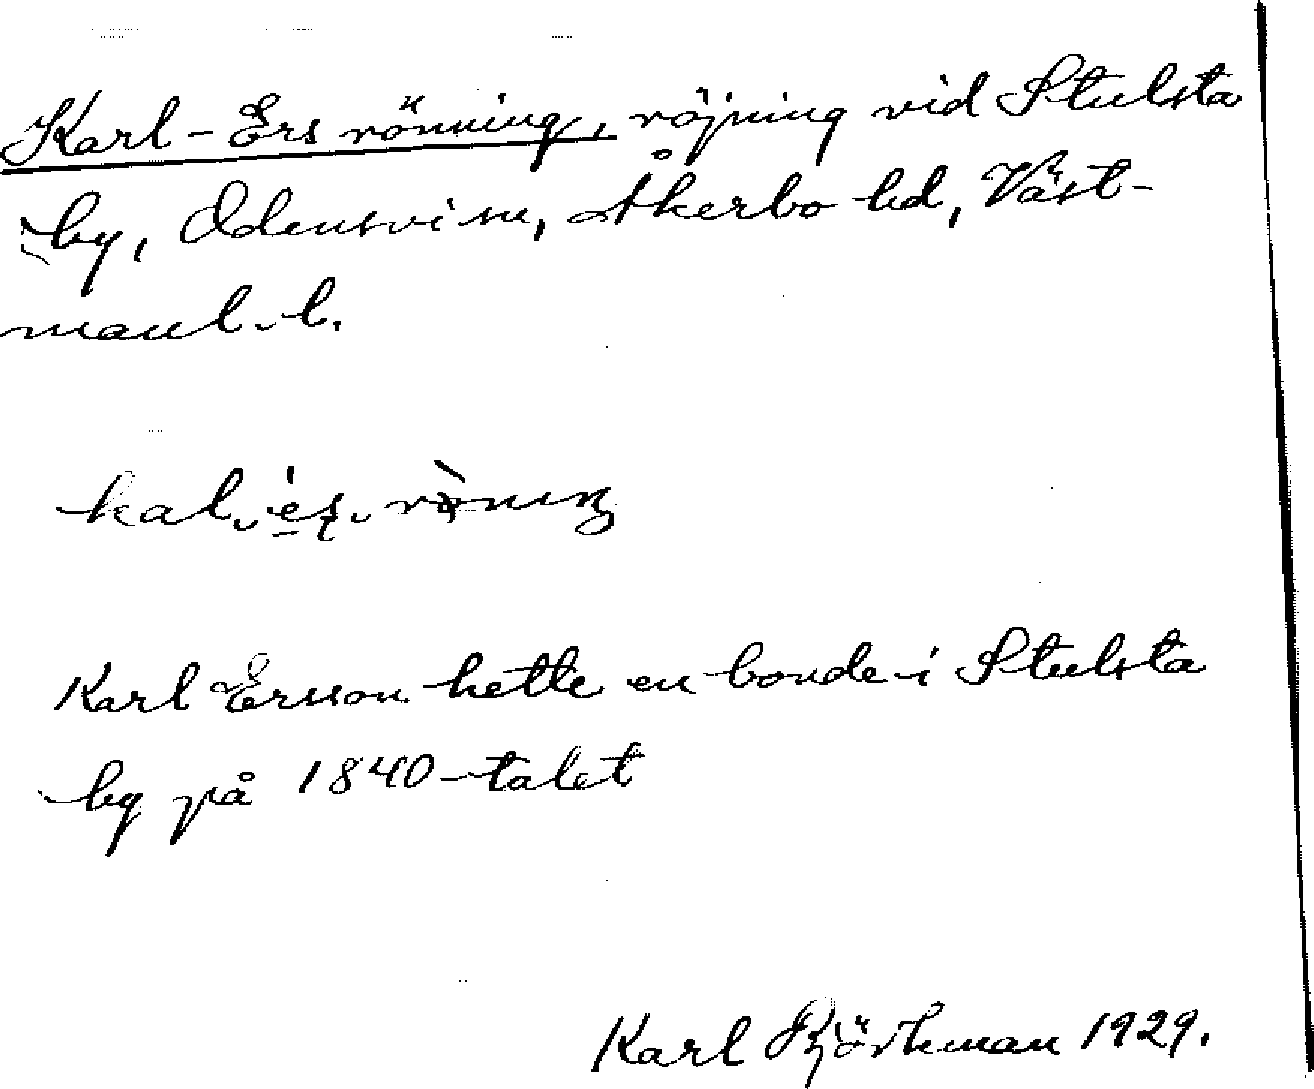 Karl-Ers rönning, röjning vid Stulsta
by, Odensvi sn, Åkerbo hd, Väst-
manl. l.
Karl Ersson hette en bonde i Stulsta
by på 1840-talet
Karl Björkman 1929.